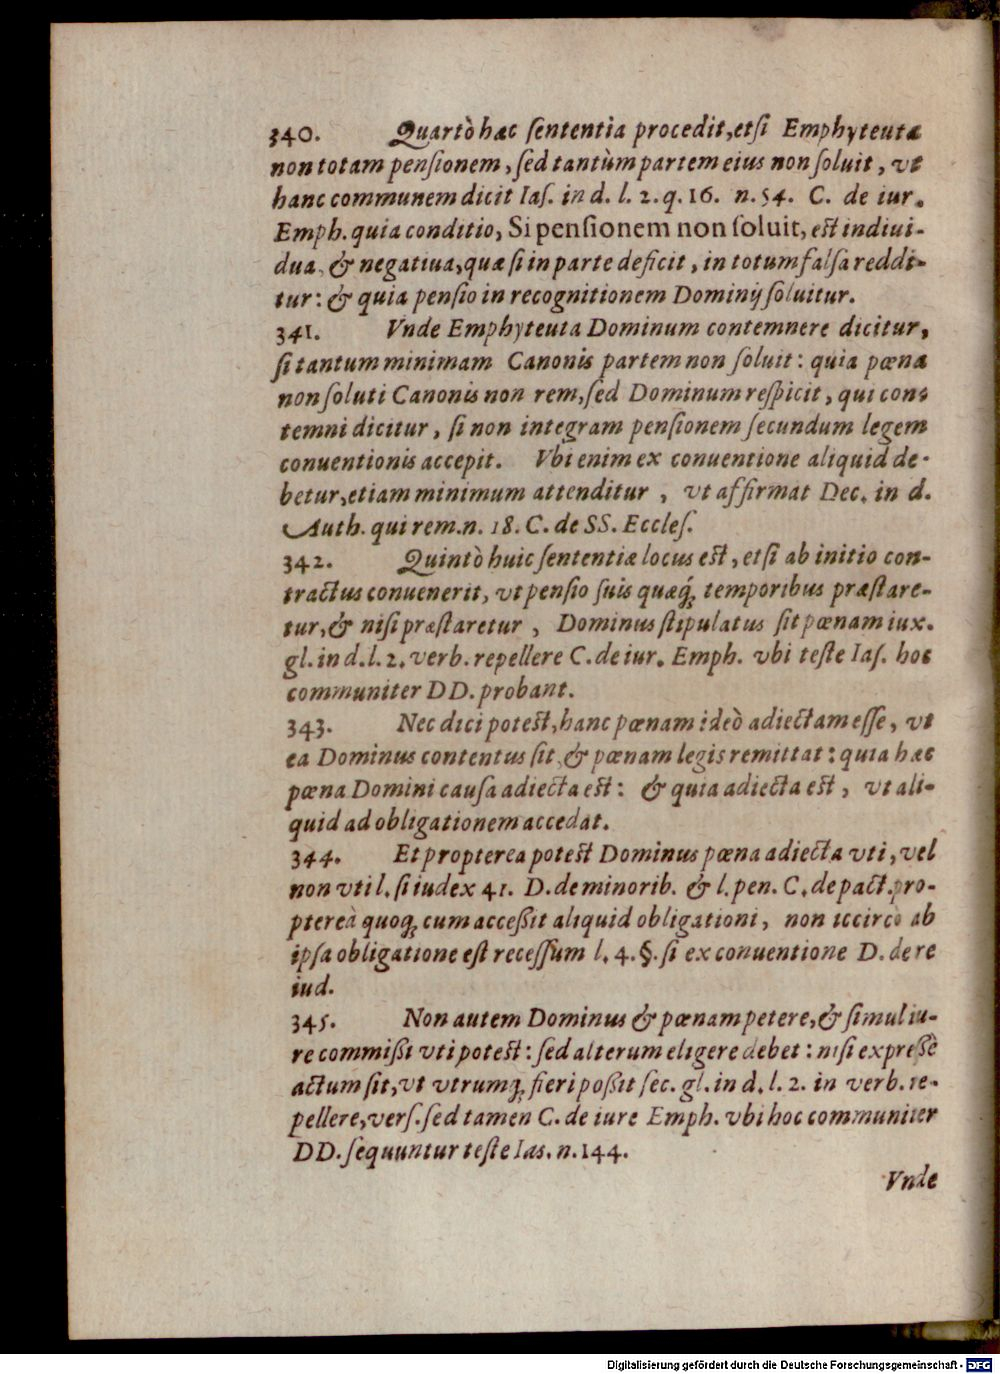 340. Quartò hæc ſententia procedit, etſi Emphyteuta
non totam penſionem, ſed tantùm partem eius non ſoluit, vt
hanc communem dicit Iaſ. in d. l. 2. q. 16. n. 54. C. de iur.
Emph. quia conditio, Si penſionem non ſoluit, eſt indiui-
dua, & negatiua, quæ ſi in parte deficit, in totum falſa reddi-
tur: & quia penſio in recognitionem Dominij ſoluitur.
341. Vnde Emphyteuta Dominum contemnere dicitur,
ſi tantum minimam Canonis partem non ſoluit: quia pœna
non ſoluti Canonis non rem, ſed Dominum reſpicit, qui con-
temni dicitur, ſi non integram penſionem ſecundum legem
conuentionis accepit. Vbi enim ex conuentione aliquid de-
betur, etiam minimum attenditur, vt affirmat Dec. in d.
Auth. qui rem. n. 18. C. de SS. Eccleſ.
342. Quintò huic ſententiæ locus eſt, etſi ab initio con-
tractus conuenerit, vt penſio ſuis quæq́; temporibus præſtare-
tur, & niſi præſtaretur, Dominus ſtipulatus ſit pœnam iux.
gl. in d. l. 2. verb. repellere C. de iur. Emph. vbi teſte Iaſ. hoc
communiter DD. probant.
343. Nec dici poteſt, hanc pœnam ideò adiectam eſſe, vt
ea Dominus contentus ſit, & pœnam legis remittat: quia hæc
pœna Domini cauſa adiecta eſt: & quia adiecta eſt, vt ali-
quid ad obligationem accedat.
344. Et propterea poteſt Dominus pœna adiecta vti, vel
non vti l. ſi iudex 41. D. de minorib. & l. pen. C. de pact. pro-
ptereà quoq; cum acceßit aliquid obligationi, non iccircò ab
ipſa obligatione eſt receſſum l. 4. §. ſi ex conuentione D. de re
iud.
345. Non autem Dominus & pœnam petere, & ſimul iu-
re commißi vti poteſt: ſed alterum eligere debet: niſi expreßè
actum ſit, vt vtrumq; fieri poßit ſec. gl. in d. l. 2. in verb. re-
pellere, verſ. ſed tamen C. de iure Emph. vbi hoc communiter
DD. ſequuntur teſte Ias. n. 144.
Vnde
Digitalisierung gefördert durch die Deutsche Forschungsgemeinschaft - DFG